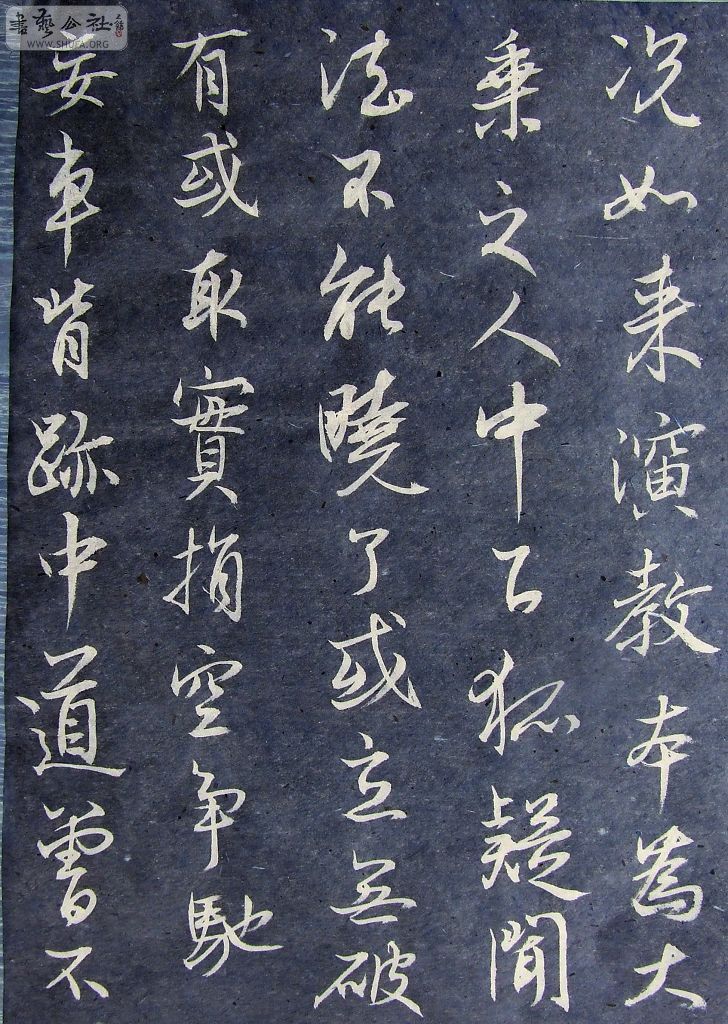 况如来演教本為大
乘之人中下狐疑聞
法不能曉了或立無破
有或取實捐空争馳
妄車背跡中道曾不
書藝公社
WWW.SHUFA.ORG